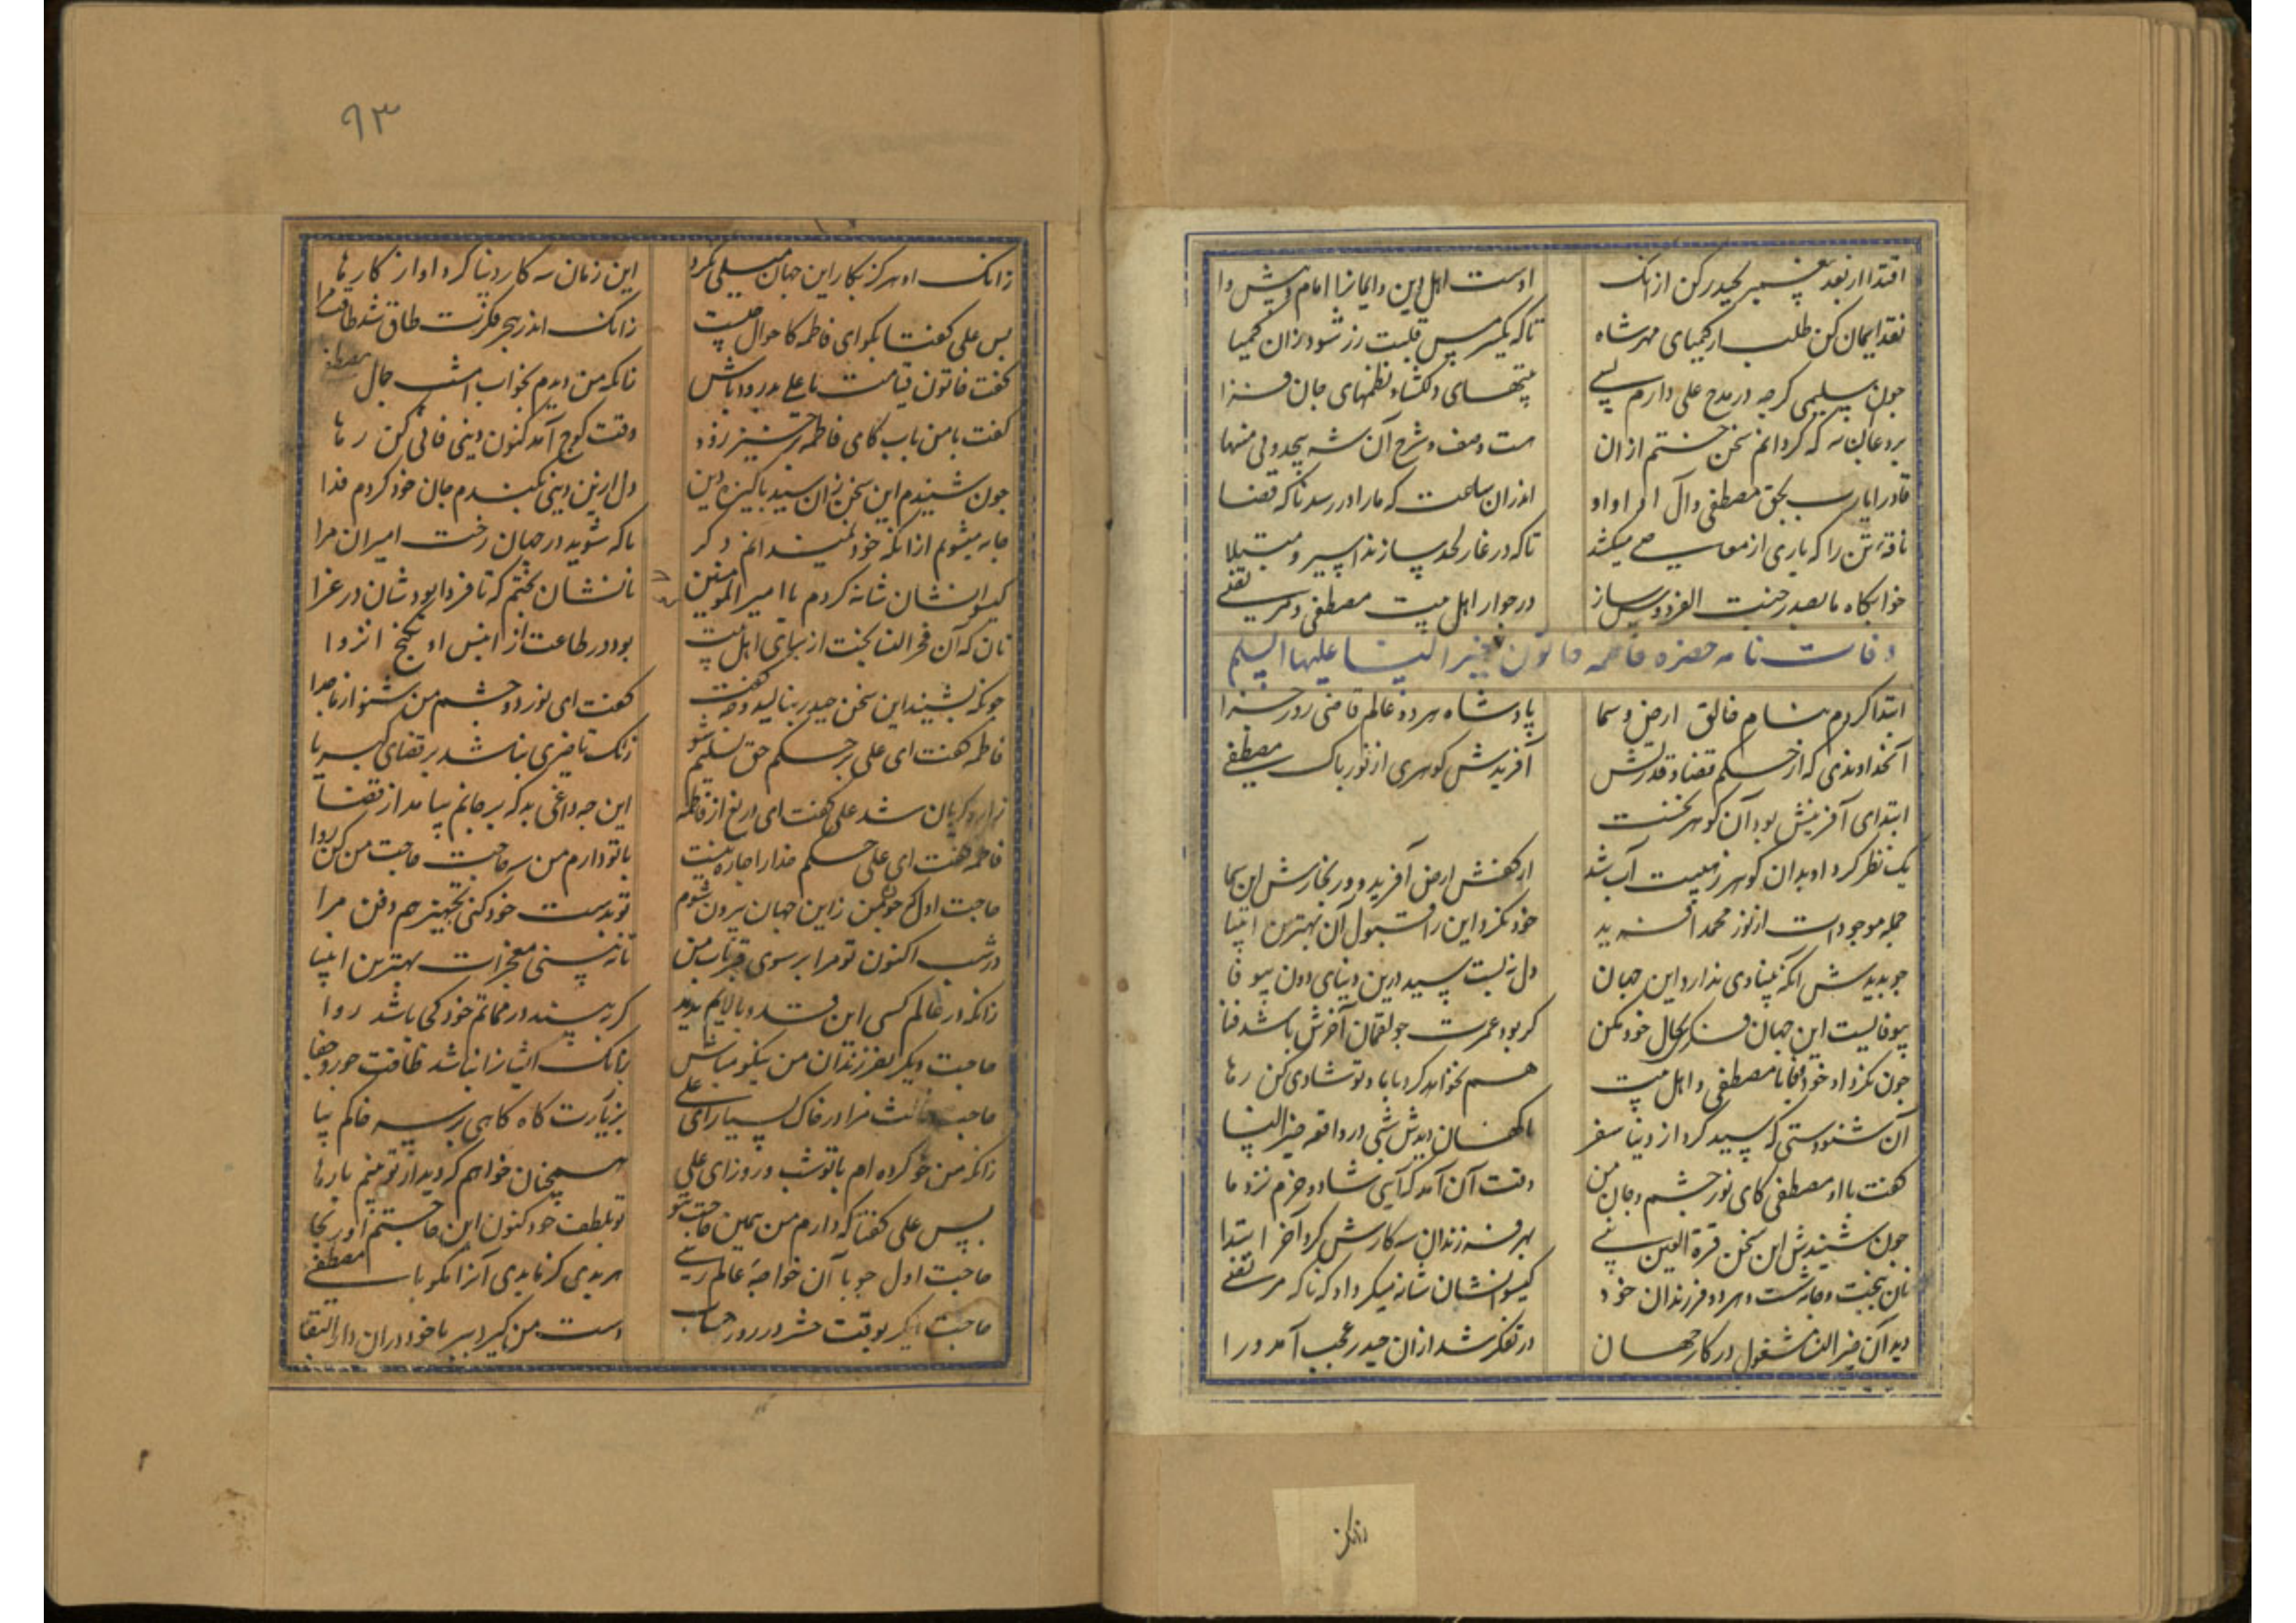 اقتدا از بعد پیغمبر بحیدر کن از آنک
اوست اهل دین و ایمانرا امام و پیش وا
نقد ایمان کن طلب از کیمیای مهر شاه
تا که یکسر مس قلبت زر شود زان کیمیا
چون سلیمی کرچه در مدح علی دارم بسی
بیتهای دلکشا و نظمهای جان فزا
که کردانم سخن ختم از آن
هست وصف و شرح آن شه بیحد و بی منتها
قادرا یارب بحق مصطفی و آل او
اندران ساعت که ما را در رسد ناکه قضا
ناقهٔ تن را که باری از معاصی میکشد
تا که در غار لحد سازند اسیر و مبتلا
خوابکاه ما بصدر جنت الفردوس ساز
در جوار اهل بیت مصطفی و مرتضی
وفات نامه حضرة فاطمه خاتون خیر النسا علیها السلم
ابتدا کردم بنام خالق ارض و سما
پادشاه هر دو عالم قاضی روز جزا
آنخداوندی که از حکم قضا و قدرتش
آفریدش کوهری از نور پاک مصطفی
ابتدای آفرینش بود آن کوهر نخست
یک نظر کرد او بدان کوهر ز هیبت آب شد
از کفش ارض آفرید و ور بخارش این سما
جمله موجودات از نور محمد آفرید
خود نکرد این را قبول آن بهترین انبیا
چو بدیدش آنکه بنیادی ندارد این جهان
دل نبست سید درین دنیای دون بیوفا
بیوفایست این جهان فکری بحال خود بکن
کر بود عمرت چو لقمان آخرش باشد فنا
چون نکرد او خود وفا با مصطفی و اهل بیت
هم نخواهد کرد با ما و تو شادی کن رها
آن شنودستی که سید کرد از دنیا سفر
ناکهان دیدش شبی در واقعه خیر النسا
کفت با او مصطفی کای نور چشم و جان من
وقت آن آمد که آیی شاد و خرم نزد ما
چون شنیدش این سخن قرة العین نبی
بهر فرزندان سه کارش کرد آخر ابتدا
نان بپخت و جامه شست و هر دو فرزندان خود
کیسوانشان شانه میکرد او که ناکه مرتضی
دید آن خیر النسا مشغول در کار جهان
در تفکر شد از آن حیدر عجب آمد ورا
زانکه
۹۳
زانک او هرکز بکار این جهان میلی نکرد
این زمان سه کار دنیا کرد او از کارها
پس علی کفتا بکو ای فاطمه کاحوال چیست
زانک اندر بحر فکرت طاق شد طاقت مرا
کفت خاتون قیامت با علی بدرود باش
زانکه من دیدم بخواب امشب جمال مصطفی
کفت با من باب کای فاطمه برخیز زود
وقت کوچ آمد کنون دنیی فانی کن رها
چون شنیدم این سخن زان سید پاکیزه دین
دل ازین دنیی بکندم جان خود کردم فدا
جامه میشویم از آنکه خود نمیدانم دکر
تا که شوید در جهان رخت امیران مرا
کیسوانشان شانه کردم یا امیر المومنین
نانشان پختم که تا فردا بود شان در عزا
نان که آن فخر النسا پخت از برای اهل بیت
بود در طاعت از انس او بکنج انزوا
چونکه بشنید این سخن حیدر بنالید و کفت
کفت ای نور دو چشم من مشو از ما جدا
فاطمه کفت ای علی بر حکم حق تسلیم شو
زانک تاخیری نباشد بر قضای کبریا
زار و کریان شد علی کفت ای دریغ از فاطمه
این چه داغی بد که بر جانم بیامد از قضا
فاطمه کفت ای علی حکم خدا را چاره نیست
با تو دارم من سه حاجت حاجت من کن روا
حاجت اول که چون من زاین جهان بیرون شوم
تو بدست خود کنی تجهیز هم دفن مرا
در شب اکنون تو مرا بر سوی قبر باب من
تا نه بینی معجزات بهترین انبیا
زانکه در عالم کسی این قد و بالایم ندید
کر به بینند در مماتم خود کی باشد روا
حاجت دیکر بفرزندان من نیکو مباش
زانک ایشانرا نباشد طاقت جور و جفا
حاجت ثالث مرا در خاک بسپار ای علی
بزیارت کاه کاهی بر سر خاکم بیا
زانکه من خو کرده ام با تو شب و روز ای علی
همچنان خواهم که دیدار تو بینم بارها
پس علی کفتا که دارم من همین حاجت بتو
تو بلطف خود کنون این حاجتم آور بجا
حاجت اول چو با آن خواجهٔ عالم رسی
هر بدی کز ما بدی آنرا مکو با مصطفی
حاجت دیکر بوقت حشر در روز حساب
دست من کیر و ببر با خود در آن دار البقا